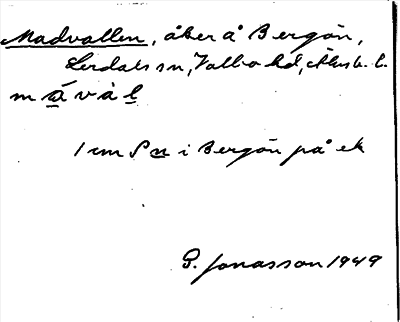 Madvallen, åker å Bergön,
Lerdals sn, Valbo hd, Älvsb. l.
m á v à l
1 cm S n i Bergön på ek
G. Jonasson 1949